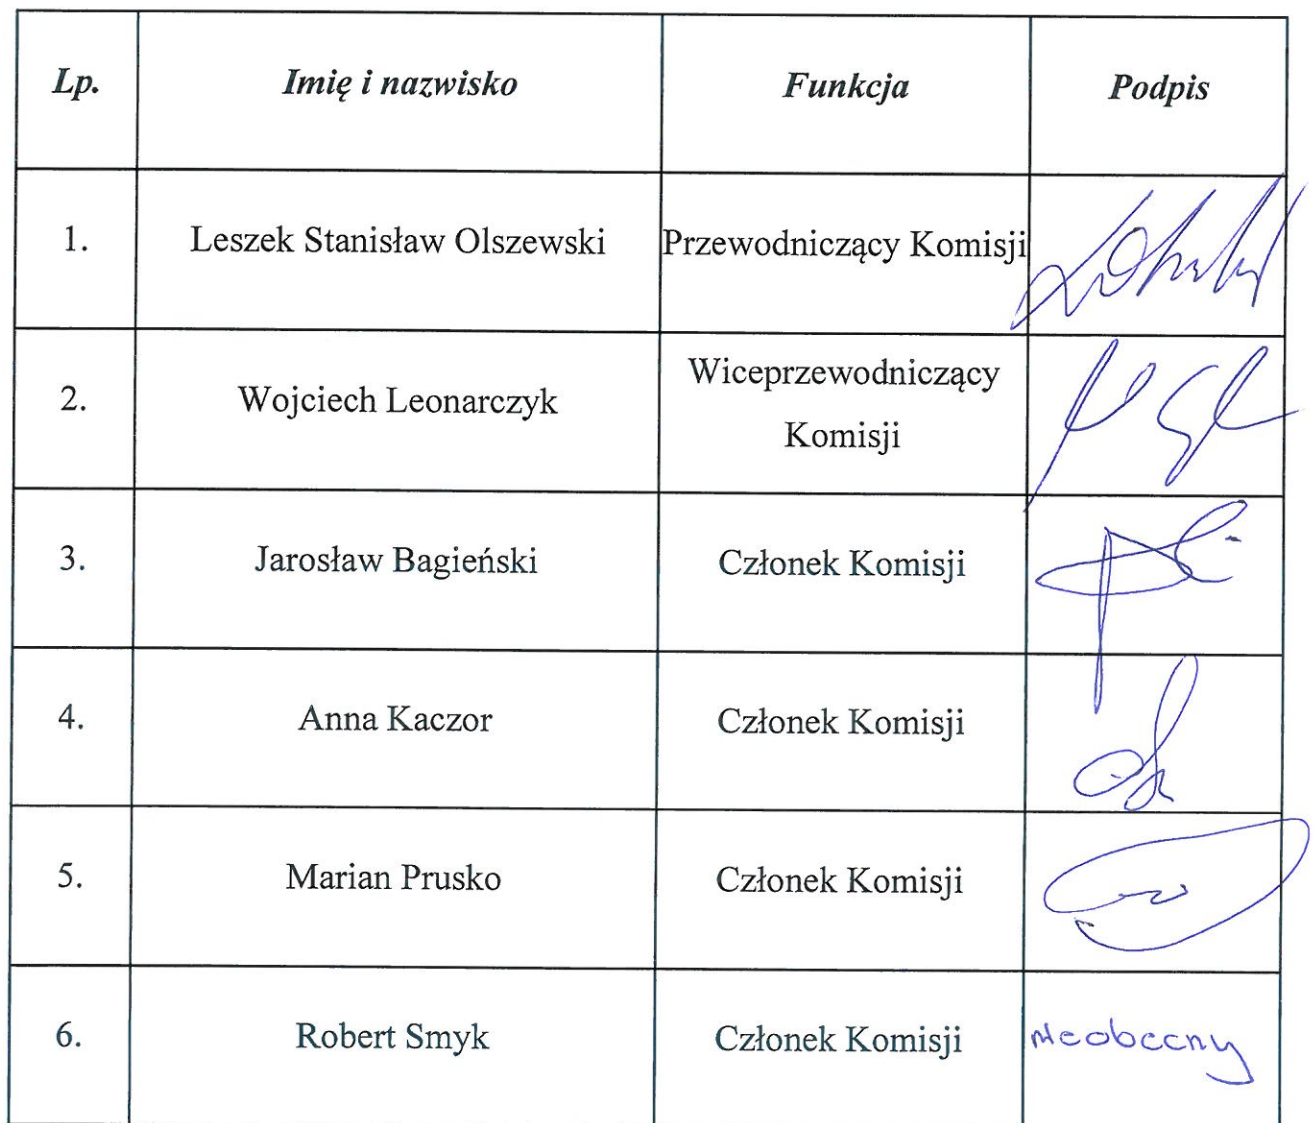 Lp. Imię i nazwisko Funkcja Podpis
1. Leszek Stanisław Olszewski Przewodniczący Komisji
2. Wojciech Leonarczyk Wiceprzewodniczący
Komisji
3. Jarosław Bagieński Członek Komisji
4. Anna Kaczor Członek Komisji
5. Marian Prusko Członek Komisji
6. Robert Smyk Członek Komisji nieobecny